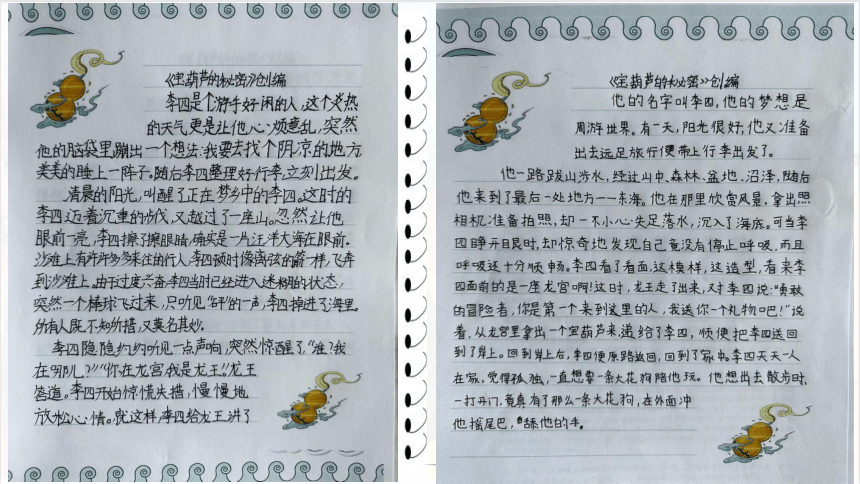 《宝葫芦的秘密》创编
李四是个游手好闲的人,这个炎热
的天气更是让他心烦意乱,突然
他的脑袋里蹦出一个想法:我要去找个阴凉的地方
美美的睡上一阵子。随后李四整理好行李,立刻出发。
清晨的阳光,叫醒了正在梦乡中的李四。这时的
李四迈着沉重的步伐,又越过了一座山。忽然让他
眼前一亮,李四擦了擦眼睛,确实是一片汪洋大海在眼前。
沙滩上有许许多多来往的行人,李四顿时像离弦的箭一样,飞奔
到沙滩上。由于过度兴奋李四当时已经进入迷糊的状态,
突然一个棒球飞过来,只听见“砰”的一声,李四掉进了海里。
所有人既不知所措,又莫名其妙。
李四隐隐约约听见一点声响,突然惊醒了,“谁?我
在哪儿?”“你在龙宫,我是龙王!”龙王
答道。李四开始惊慌失措,慢慢地
放松心情。就这样,李四给龙王讲了
《宝葫芦的秘密》创编
他的名字叫李四,他的梦想是
周游世界。有一天,阳光很好,他又准备
出去远足旅行便带上行李出发了。
他一路跋山涉水,经过山中、森林、盆地、沼泽,随后
他来到了最后一处地方——东海。他在那里欣赏风景,拿出照
相机准备拍照,却一不小心失足落水,沉入了海底。可当李
四睁开眼时,却惊奇地发现自己竟没有停止呼吸,而且
呼吸还十分顺畅。李四看了看面,这模样,这造型,看来李
四面前的是一座龙宫啊!这时,龙王走了出来,对李四说:“勇敢
的冒险者,你是第一个来到这里的人,我送你一个礼物吧!”说
着,从龙宫里拿出一个宝葫芦来递给了李四,顺便把李四送回
到了岸上。回到岸上后,李四便原路返回,回到了家中。李四天天一人
在家,觉得孤独,一直想要一条大花狗陪他玩。他想出去散步时,
一打开门,竟真有了那么一条大花狗,在外面冲
他摇尾巴,舔他的手。